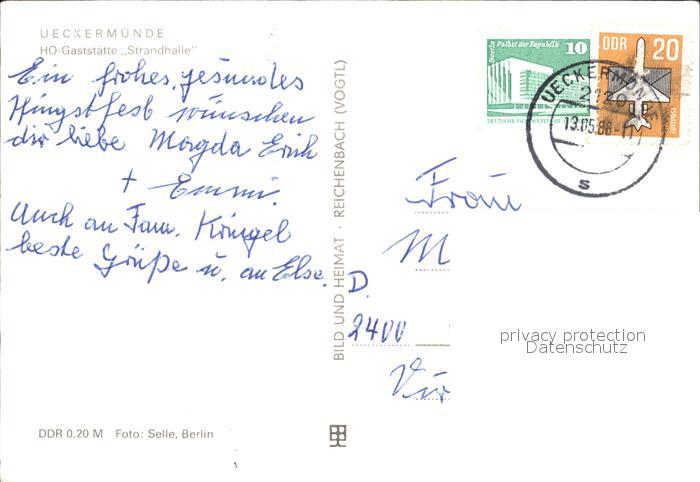 UECKERMÜNDE
HO-Gaststätte „Strandhalle"
Ein frohes, gesundes
Pfingstfest wünschen
dir liebe Magda Erich
+ Emmi.
Auch an Fam. Krüngel
beste Grüße u. an Else.
DDR 0,20 M Foto: Selle, Berlin
BILD UND HEIMAT · REICHENBACH (VOGTL)
Berlin Palast der Republik 10
DDR 20
LUFTPOST
UECKERMÜNDE
2120
13.05.86-11
s
Frau
M
D.
2400
privacy protection
Datenschutz